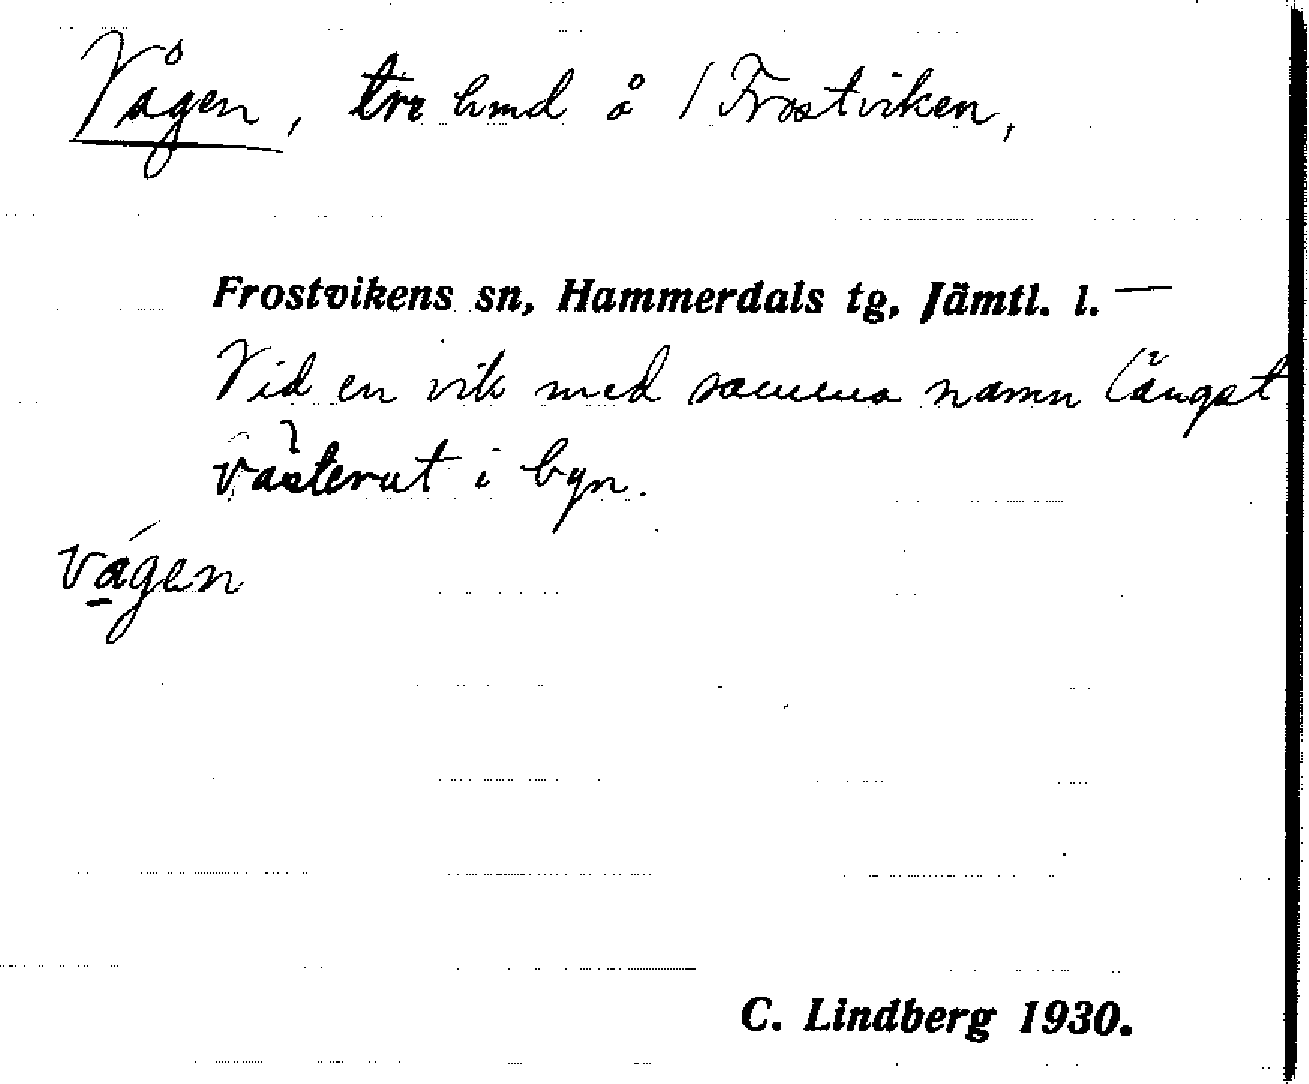 Vågen, tre hmd å 1 Frostviken,
Frostvikens sn, Hammerdals tg, Jämtl. l. —
Vid en vik med samma namn längst
västerut i byn.
vágen
C. Lindberg 1930.